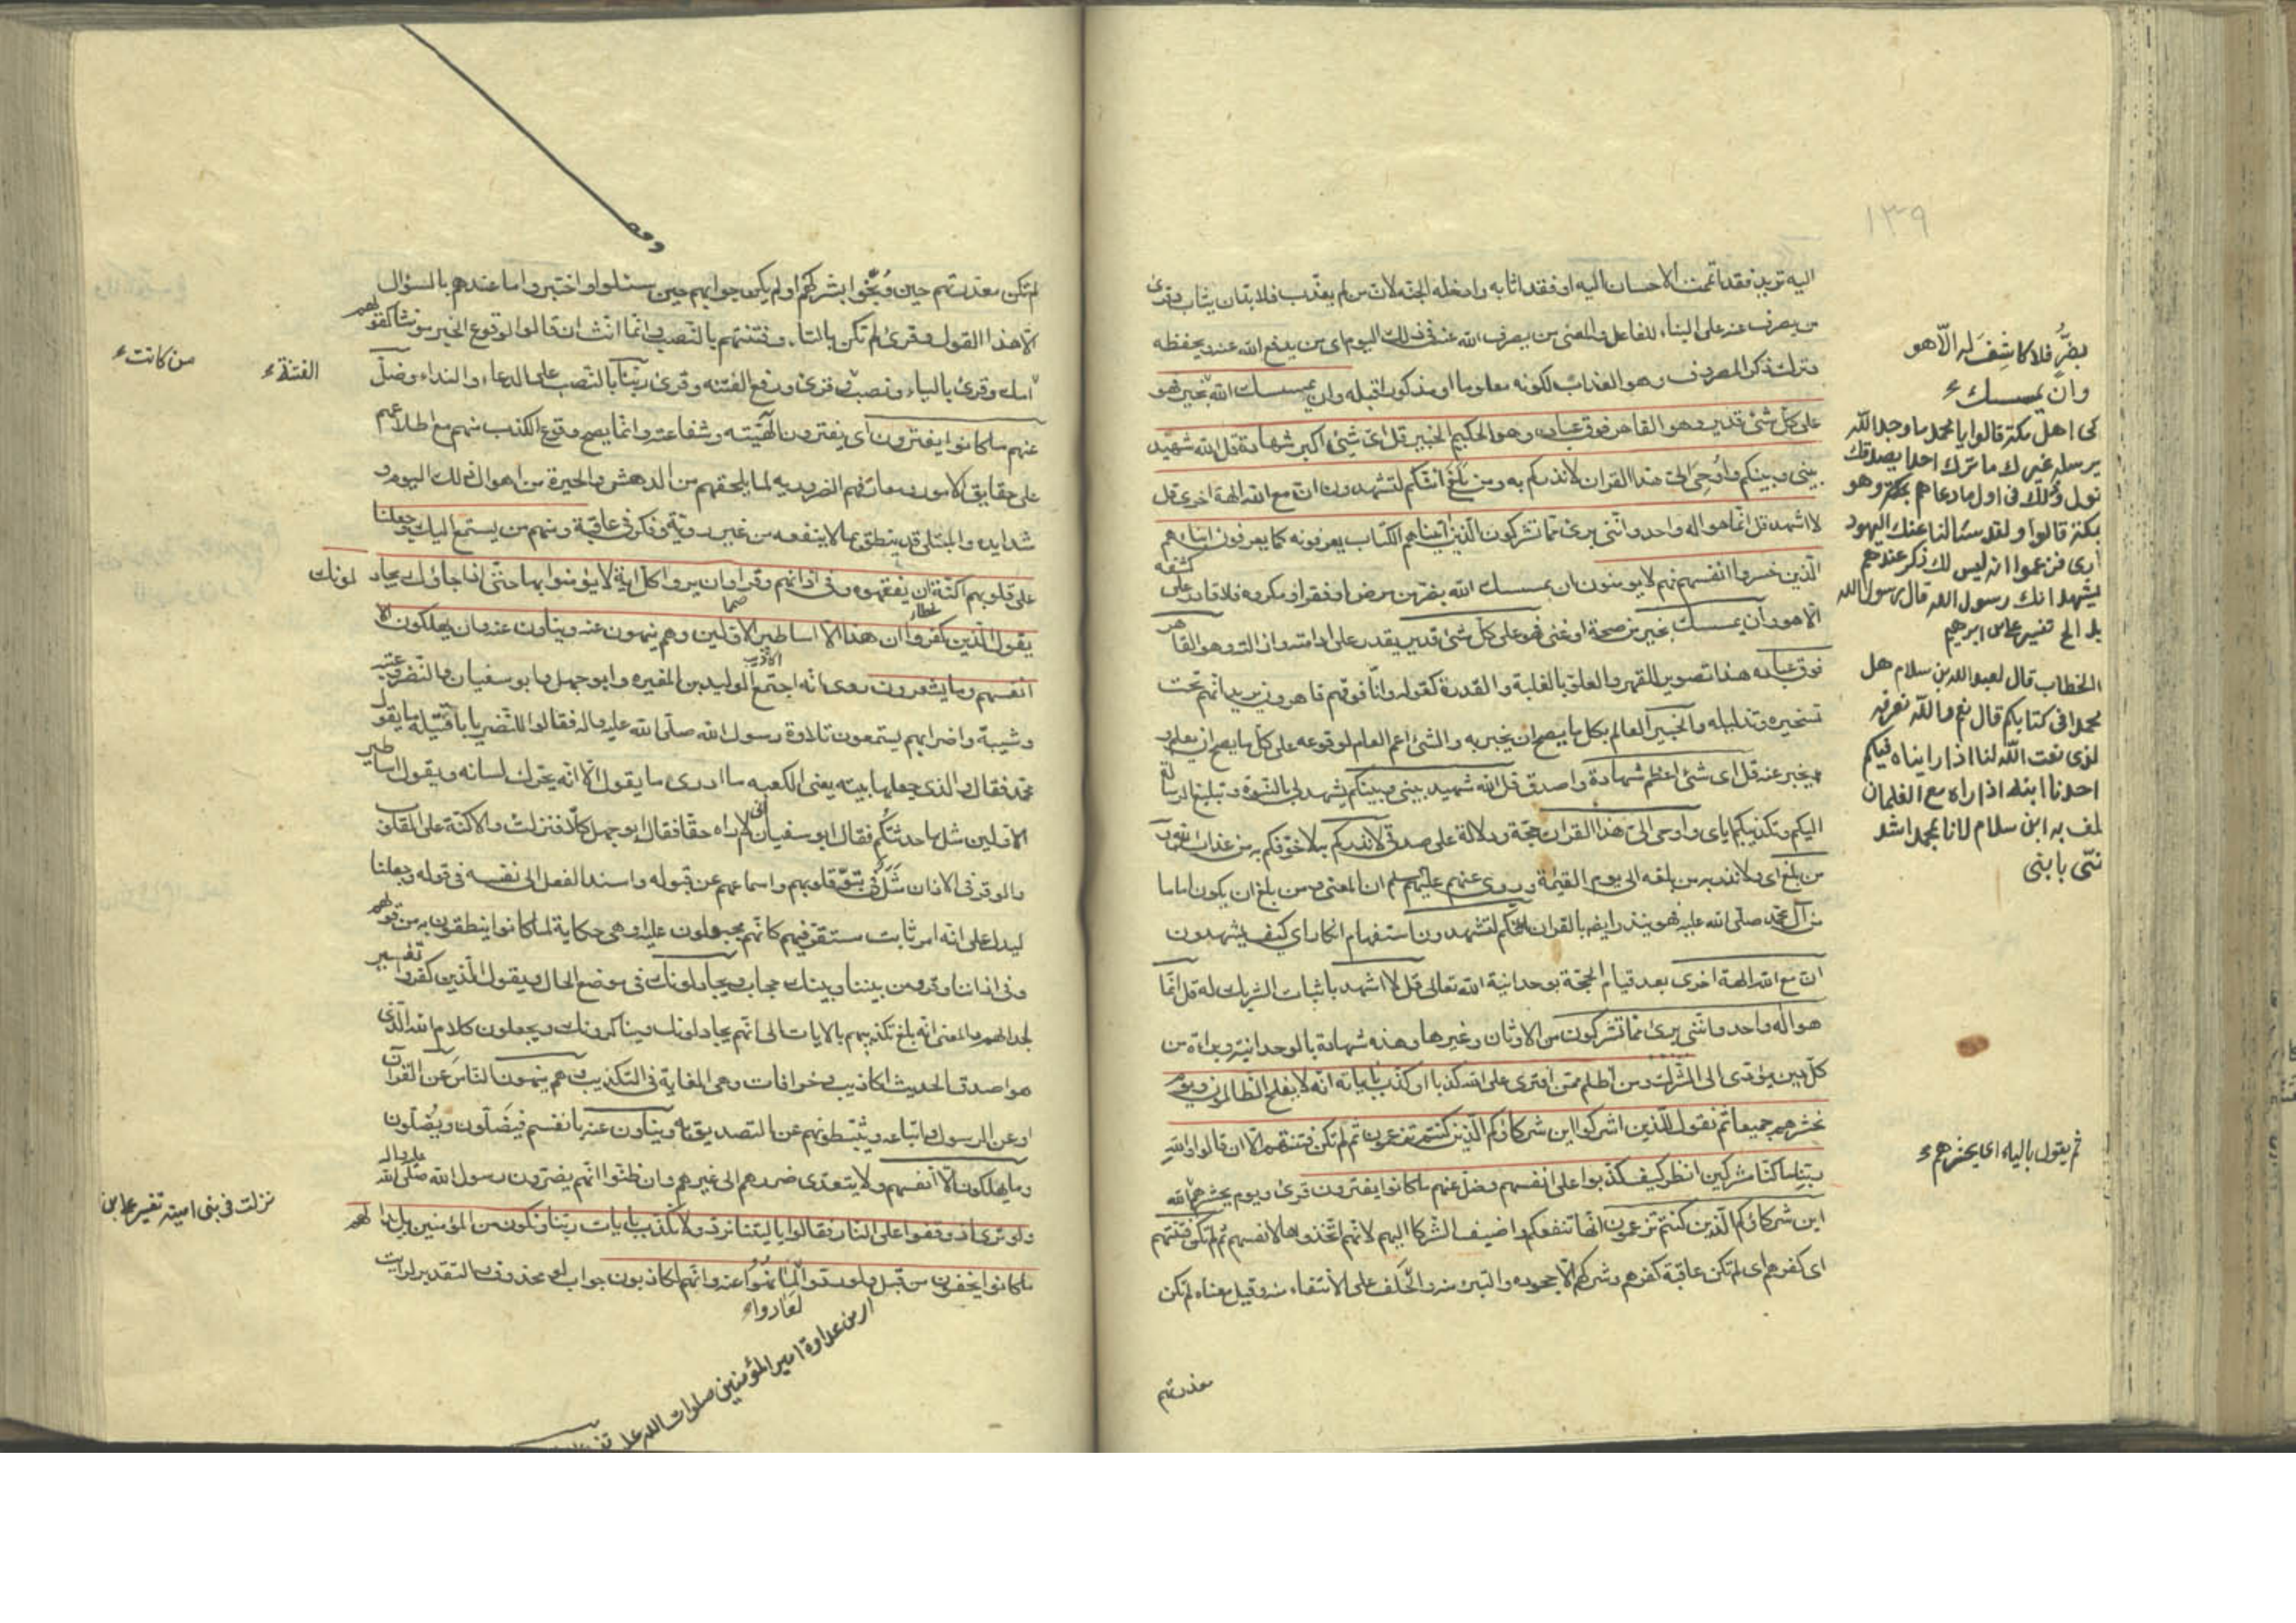 ١٣٩
اليه تريد فقد اتممت الاحسان اليه او فقد اثابه وادخله الجنة لان من لم يعذب فلا بد ان يثاب وقرئ
من يصرف عنه على البناء للفاعل والمعنى من يصرف الله عنه فى ذلك اليوم اى من يدفع الله عنه ويحفظه
وترك ذكر المصروف وهو العذاب لكونه معلوما او مذكورا قبله وان يمسسك الله بخير فهو
على كل شئ قدير وهو القاهر فوق عباده وهو الحكيم الخبير قل اى شئ اكبر شهادة قل الله شهيد
بينى وبينكم واُوحِىَ الىّ هذا القران لانذركم به ومن بَلَغَ أئنكم لتشهدون ان مع الله الهة اخرى قل
لا اشهد قل انما هو اله واحد واننى برئ مما تشركون الذين اتيناهم الكتاب يعرفونه كما يعرفون ابناءهم
الذين خسروا انفسهم فهم لا يومنون ان يمسسك الله بضر من مرض او فقر او مكروه فلا قادر على كشفه
الا هو وان يمسسك بخير من صحة او غنى فهو على كل شئ قدير يقدر على ادامته وازالته وهو القاهر
فوق عباده هذا تصوير للقهر والعلو بالغلبة والقدرة كقوله وانا فوقهم قاهرون يريد انهم تحت
تسخيره وتذليله والخبير العالم بكل ما يصح ان يخبر به والشئ اعم العام لوقوعه على كل ما يصح ان يعلم و
يخبر عنه قل اى شئ اعظم شهادة واصدق قل الله شهيد بينى وبينكم يشهد لى بالنبوة وتبليغ الرسالة
اليكم وتكذيبكم اياى واوحى الى هذا القران حجة ودلالة على صدقى لانذركم به لاخوفكم به من عذاب الله
من بلغ اى ولانذر به من بلغه الى يوم القيمة وروى عنهم عليهم سلم ان المعنى ومن بلغ ان يكون اماما
من آل محمد صلى الله عليه فهو ينذر ايضا بالقران ائنكم لتشهدون استفهام انكار اى كيف يشهدون
ان مع الله الهة اخرى بعد قيام الحجة بوحدانية الله تعالى قل لا اشهد باثبات الشريك له قل انما
هو اله واحد واننى برئ مما تشركون من الاوثان وغيرها وهذه شهادة بالوحدانية وبراءة من
كل دين يؤدى الى الشرك ومن اظلم ممن افترى على الله كذبا او كذب باياته انه لا يفلح الظالمون ويوم
نحشرهم جميعا ثم نقول للذين اشركوا اين شركاؤكم الذين كنتم تزعمون ثم لم تكن فتنتهم الا ان قالوا والله
ربنا ما كنا مشركين انظر كيف كذبوا على انفسهم وضل عنهم ما كانوا يفترون قرئ ويوم يحشرهم الله
اين شركاؤكم الذين كنتم تزعمون انها تنفعكم واضيف الشركا اليهم لانهم اتخذوها لانفسهم ثم لم تكن فتنتهم
اى كفرهم اى لم تكن عاقبة كفرهم وشركهم الا جحوده والتبرئ منه والحلف على الانتفاء منه وقيل معناه لم تكن
معذرتهم
بضرٍّ فلا كاشِفَ له الّا هو
وان يمسسك
كى اهل مكة قالوا يا محمد ما وجد الله
يرسله غيرك ما ترى احدا يصدقك
تقول وذلك فى اول ما دعاهم بمكة وهو
بمكة قالوا ولقد سئالنا عنك اليهود
فزعموا انه ليس لك ذكر عندهم
يشهد انك رسول الله قال رسول الله
تفسير على بن ابرهيم
الخطاب قال لعبد الله بن سلام هل
محمدا فى كتابكم قال نعم والله نعرفه
لذى نعت الله لنا اذا رايناه فيكم
احدنا ابنه اذا راه مع الغلمان
به ابن سلام لانا بمحمد اشد
بابنى
ثم يقول بالياء اى يحشرهم
لم تكن معذرتهم حين وُبّخوا بشركهم او لم يكن جوابهم حين سئلوا واختبر ما عندهم بالسؤال
الا هذا القول وقرئ لم تكن بالتاء وفتنتهم بالنصب وانما انث ان قالوا لوقوع الخبر مؤنثا كقولهم
من كانت
امك وقرئ بالياء ونصب فتنتهم وقرئ ورفع الفتنه وقرئ ربنا بالنصب على الدعاء والنداء وضل
الفتنة
عنهم ما كانوا يفترون اى يفترون الهيّته وشفاعته وانما يصح وقوع الكذب منهم مع اطلاعهم
على حقايق الامور ومعارفهم الضروريه لما يلحقهم من الدهش والحيرة من اهوال ذلك اليوم و
شدايده والمبتلى قد ينطق بما لا ينفعه من غير روية وفكر فى عاقبة ومنهم من يستمع اليك وجعلنا
على قلوبهم اكنة ان يفقهوه وفى اذانهم وقرا وان يروا كل اية لا يؤمنوا بها حتى اذا جاؤك يجادلونك
يقول الذين كفروا ان هذا الا اساطير الاولين وهم ينهون عنه ويناون عنه وان يهلكون الا
انفسهم وما يشعرون روى انه اجتمع الوليد بن المغيره وابو جهل وابو سفيان والنضر وعتبه
وشيبة واضرابهم يستمعون تلاوة رسول الله صلى الله عليه واله فقالوا للنضر يا با قتيلة ما يقول
محمد فقال والذى جعلها بيته يعنى الكعبه ما ادرى ما يقول الا انه يحرك لسانه ويقول اساطير
الاولين مثل ما حدثتكم فقال ابو سفيان انى لاراه حقا فقال ابو جهل كلا فنزلت والاكنة على القلوب
والوقر فى الاذان مَثَل فى نبوّ قلوبهم واسماعهم عن قبوله واسند الفعل الى نفسه فى قوله وجعلنا
ليدل على انه امر ثابت مستقر فيهم كانهم مجبولون عليه او هى حكاية لما كانوا ينطقون به من قولهم
وفى اذاننا وقر ومن بيننا وبينك حجاب ويجادلونك فى موضع الحال ويقول الذين كفروا تفسير
لجدالهم والمعنى انه بلغ تكذيبهم بالايات الى انهم يجادلونك ويناكرونك ويجعلون كلام الله الذى
هو اصدق الحديث اكاذيب وخرافات وهى الغاية فى التكذيب وهم ينهون الناس عن القران
او عن الرسول واتباعه ويثبطونهم عن التصديق به ويناون عنه بانفسهم فيَضلّون ويُضلّون
وما يهلكون الا انفسهم ولا يتعدى ضررهم الى غيرهم وان ظنوا انهم يضرون رسول الله صلى الله عليه واله
ولو ترى اذ وقفوا على النار فقالوا يا ليتنا نرد ولا نكذب بايات ربنا ونكون من المؤمنين بل بدا لهم
نزلت فى بنى امية تفسير على بن
ما كانوا يخفون من قبل ولو ردوا لما نهوا عنه وانهم لكاذبون جواب لو محذوف والتقدير لرايت
لعادوا
من عداوة امير المؤمنين صلوات الله عليه